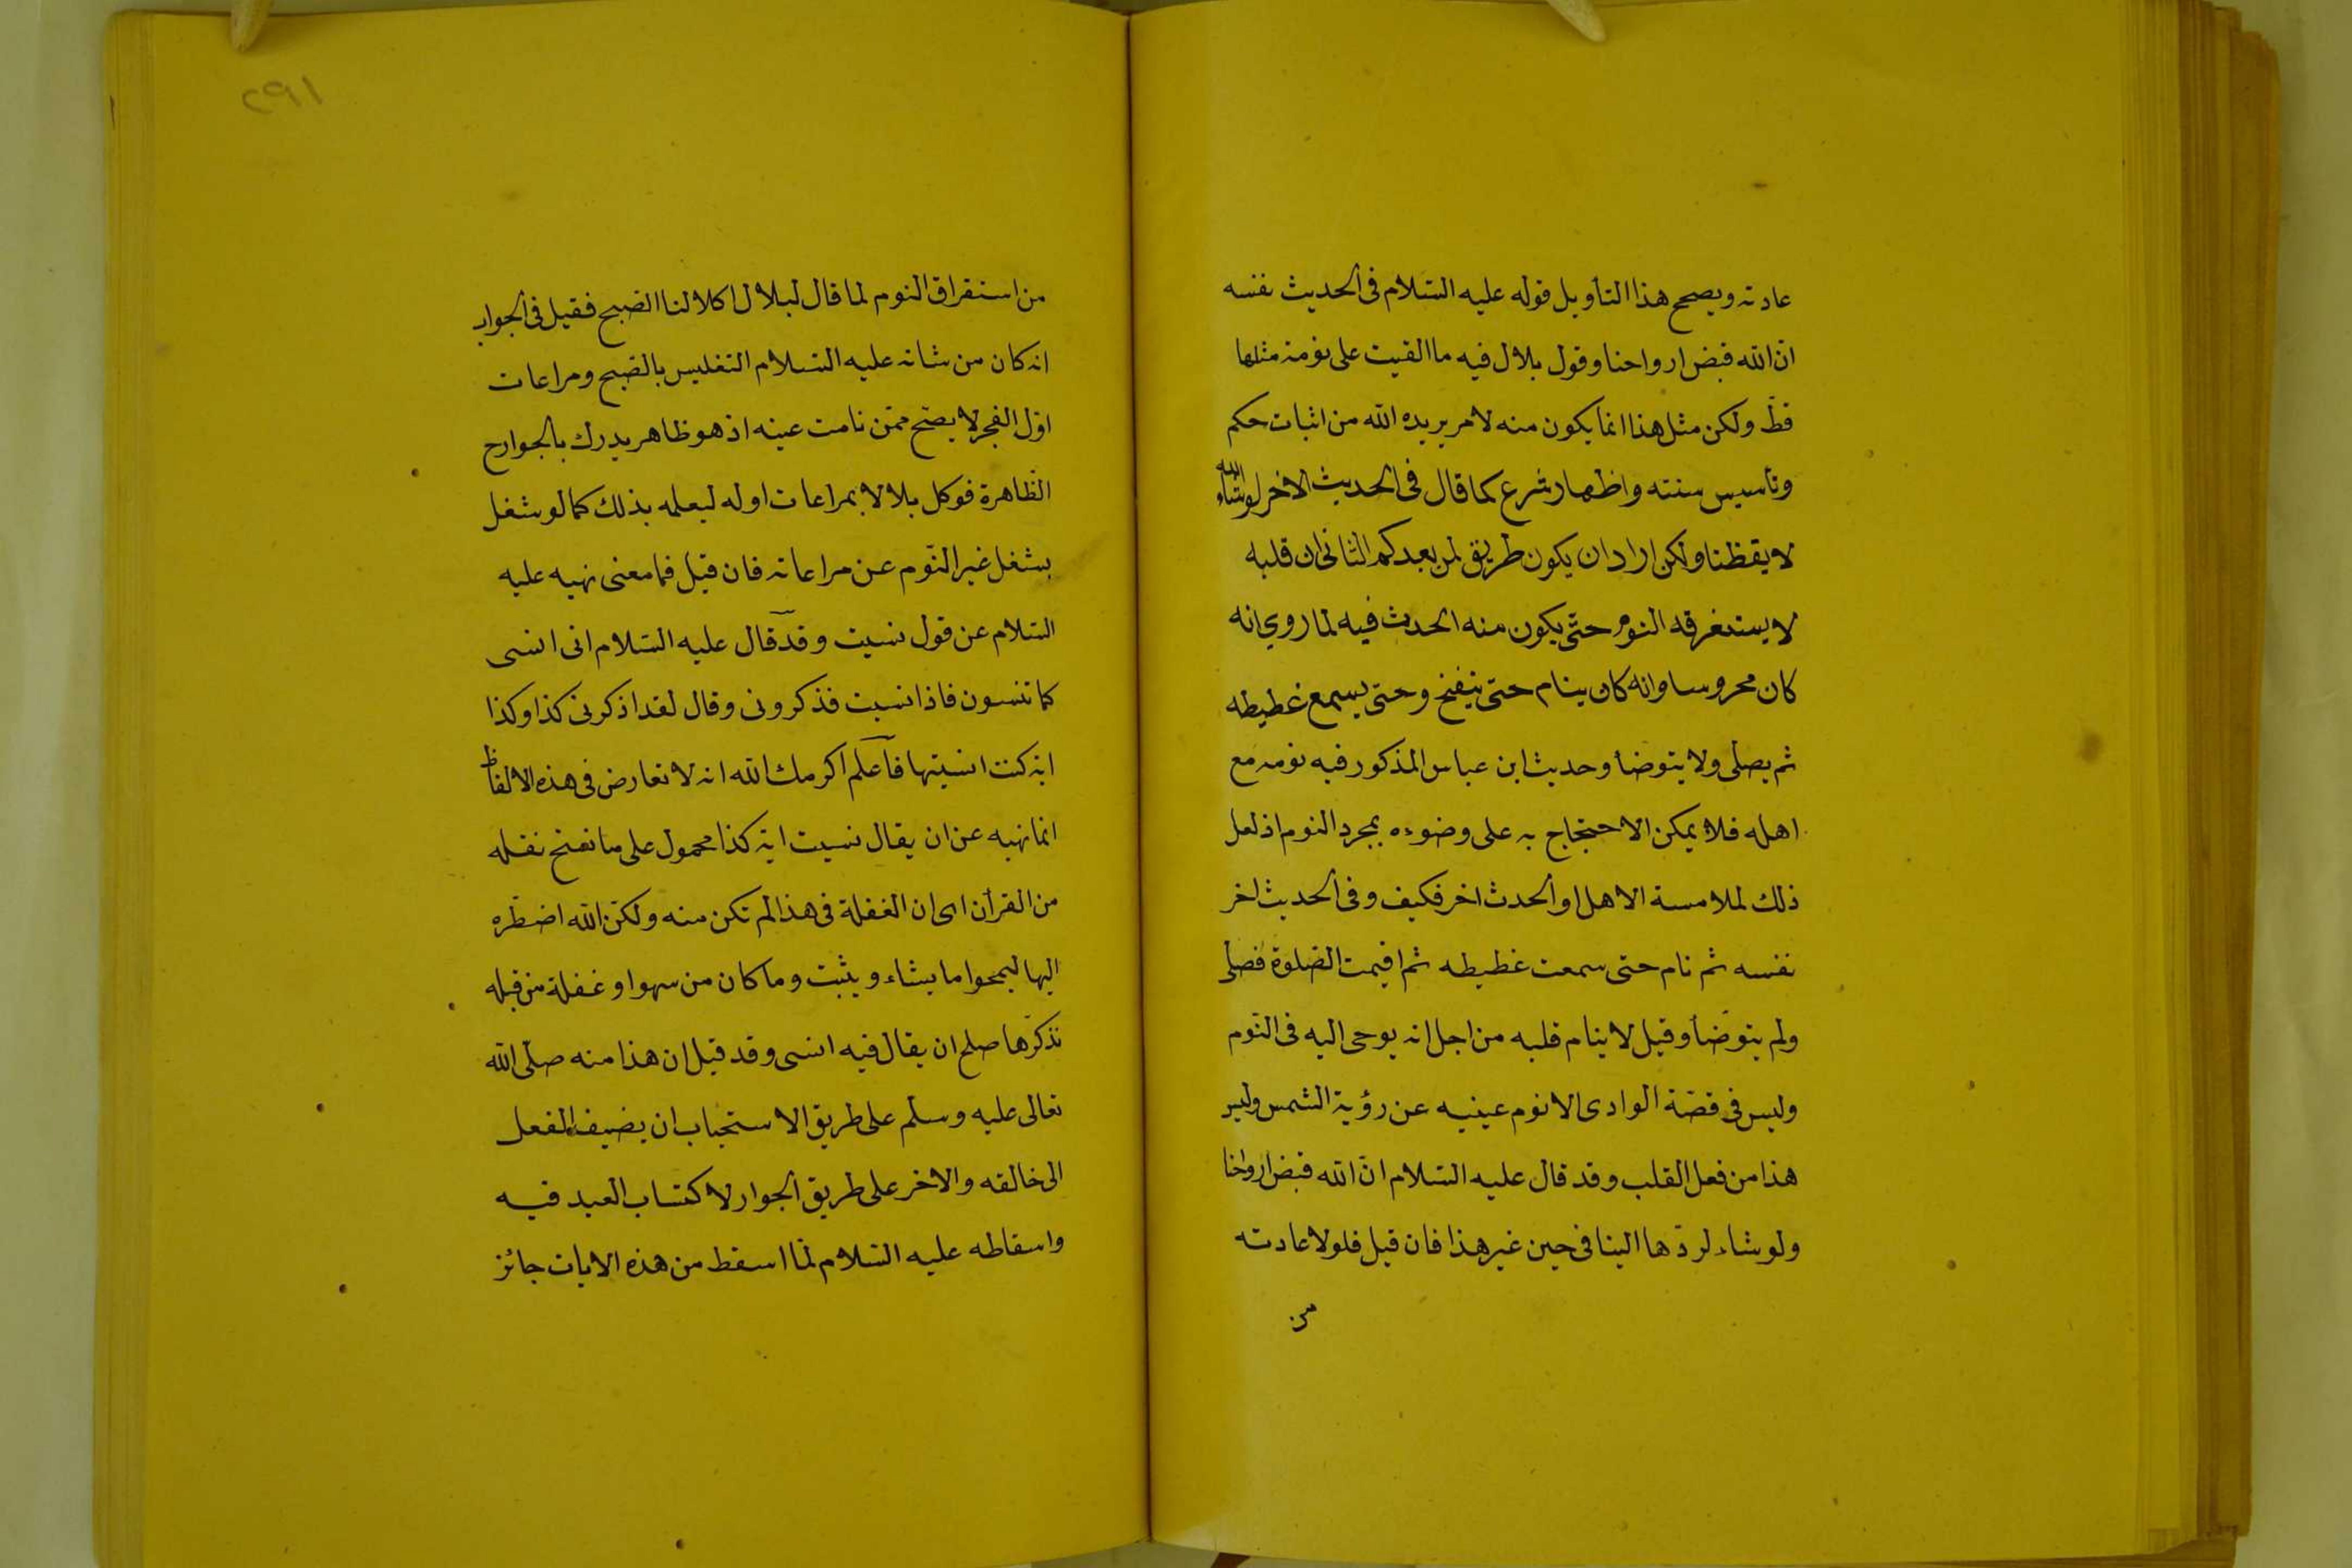 عادته ويصحح هذا التأويل قوله عليه السّلام فى الحديث نفسه
انّ الله قبض ارواحنا وقول بلال فيه ما القيت على نومة مثلها
قطّ ولكن مثل هذا انما يكون منه لامر يريده الله من اثبات حكم
وتأسيس سنته واظهار شرع كما قال فى الحديث الاخر لو شاء الله
لايقظنا ولكن اراد ان يكون طريق لمن بعدكم الثانى ان قلبه
لا يستغرقه النوم حتّى يكون منه الحدث فيه لما روي انه
كان محروسا وانه كان ينام حتى ينفخ وحتى يسمع غطيطه
ثم يصلى ولا يتوضأ وحديث ابن عباس المذكور فيه نومه مع
اهله فلا يمكن الاحتجاج به على وضوءه بمجرد النوم اذ لعل
ذلك لملامسة الاهل او الحدث اخر فكيف وفى الحديث اخر
نفسه ثم نام حتى سمعت غطيطه ثم اقيمت الصّلوة فصلّى
ولم يتوضّأ وقيل لا ينام قلبه من اجل انه يوحى اليه فى النّوم
وليس فى قصّة الوادى الا نوم عينيه عن رؤية الشمس وليس
هذا من فعل القلب وقد قال عليه السّلام انّ الله قبض ارواحنا
ولو شاء لردّها الينا فى حين غير هذا فان قيل فلولا عادته
من
٢٩١
من استغراق النوم لما قال لبلال اكلا لنا الصّبح فقيل فى الجواب
انه كان من شانه عليه السّلام التغليس بالصّبح ومراعات
اوّل الفجر لا يصّح ممّن نامت عينه اذ هو ظاهر يدرك بالجوارح
الظّاهرة فوكل بلالا بمراعات اوله ليعلمه بذلك كما لو شغل
بشغل غير النّوم عن مراعاته فان قيل فما معنى نهيه عليه
السّلام عن قول نسيت وقد قال عليه السّلام انى انسى
كما تنسون فاذا نسيت فذكرونى وقال لقد اذكرنى كذا وكذا
اية كنت انسيتها فاعلم اكرمك الله انه لا تعارض فى هذه الالفاظ
انما نهيه عن ان يقال نسيت اية كذا محمول على ما نسخ نقله
من القرأن اى ان الغفلة فى هذا لم تكن منه ولكنّ الله اضطّره
اليها ليمحوا ما يشاء ويثبت وما كان من سهو او غفلة من قبله
تذكّرها صلح ان يقال فيه انسى وقد قيل ان هذا منه صلّى الله
تعالى عليه وسلّم على طريق الاستحباب ان يضيف الفعل
الى خالقه والاخر على طريق الجواز لاكتساب العبد فيه
واسقاطه عليه السّلام لمّا اسقط من هذه الايات جائز